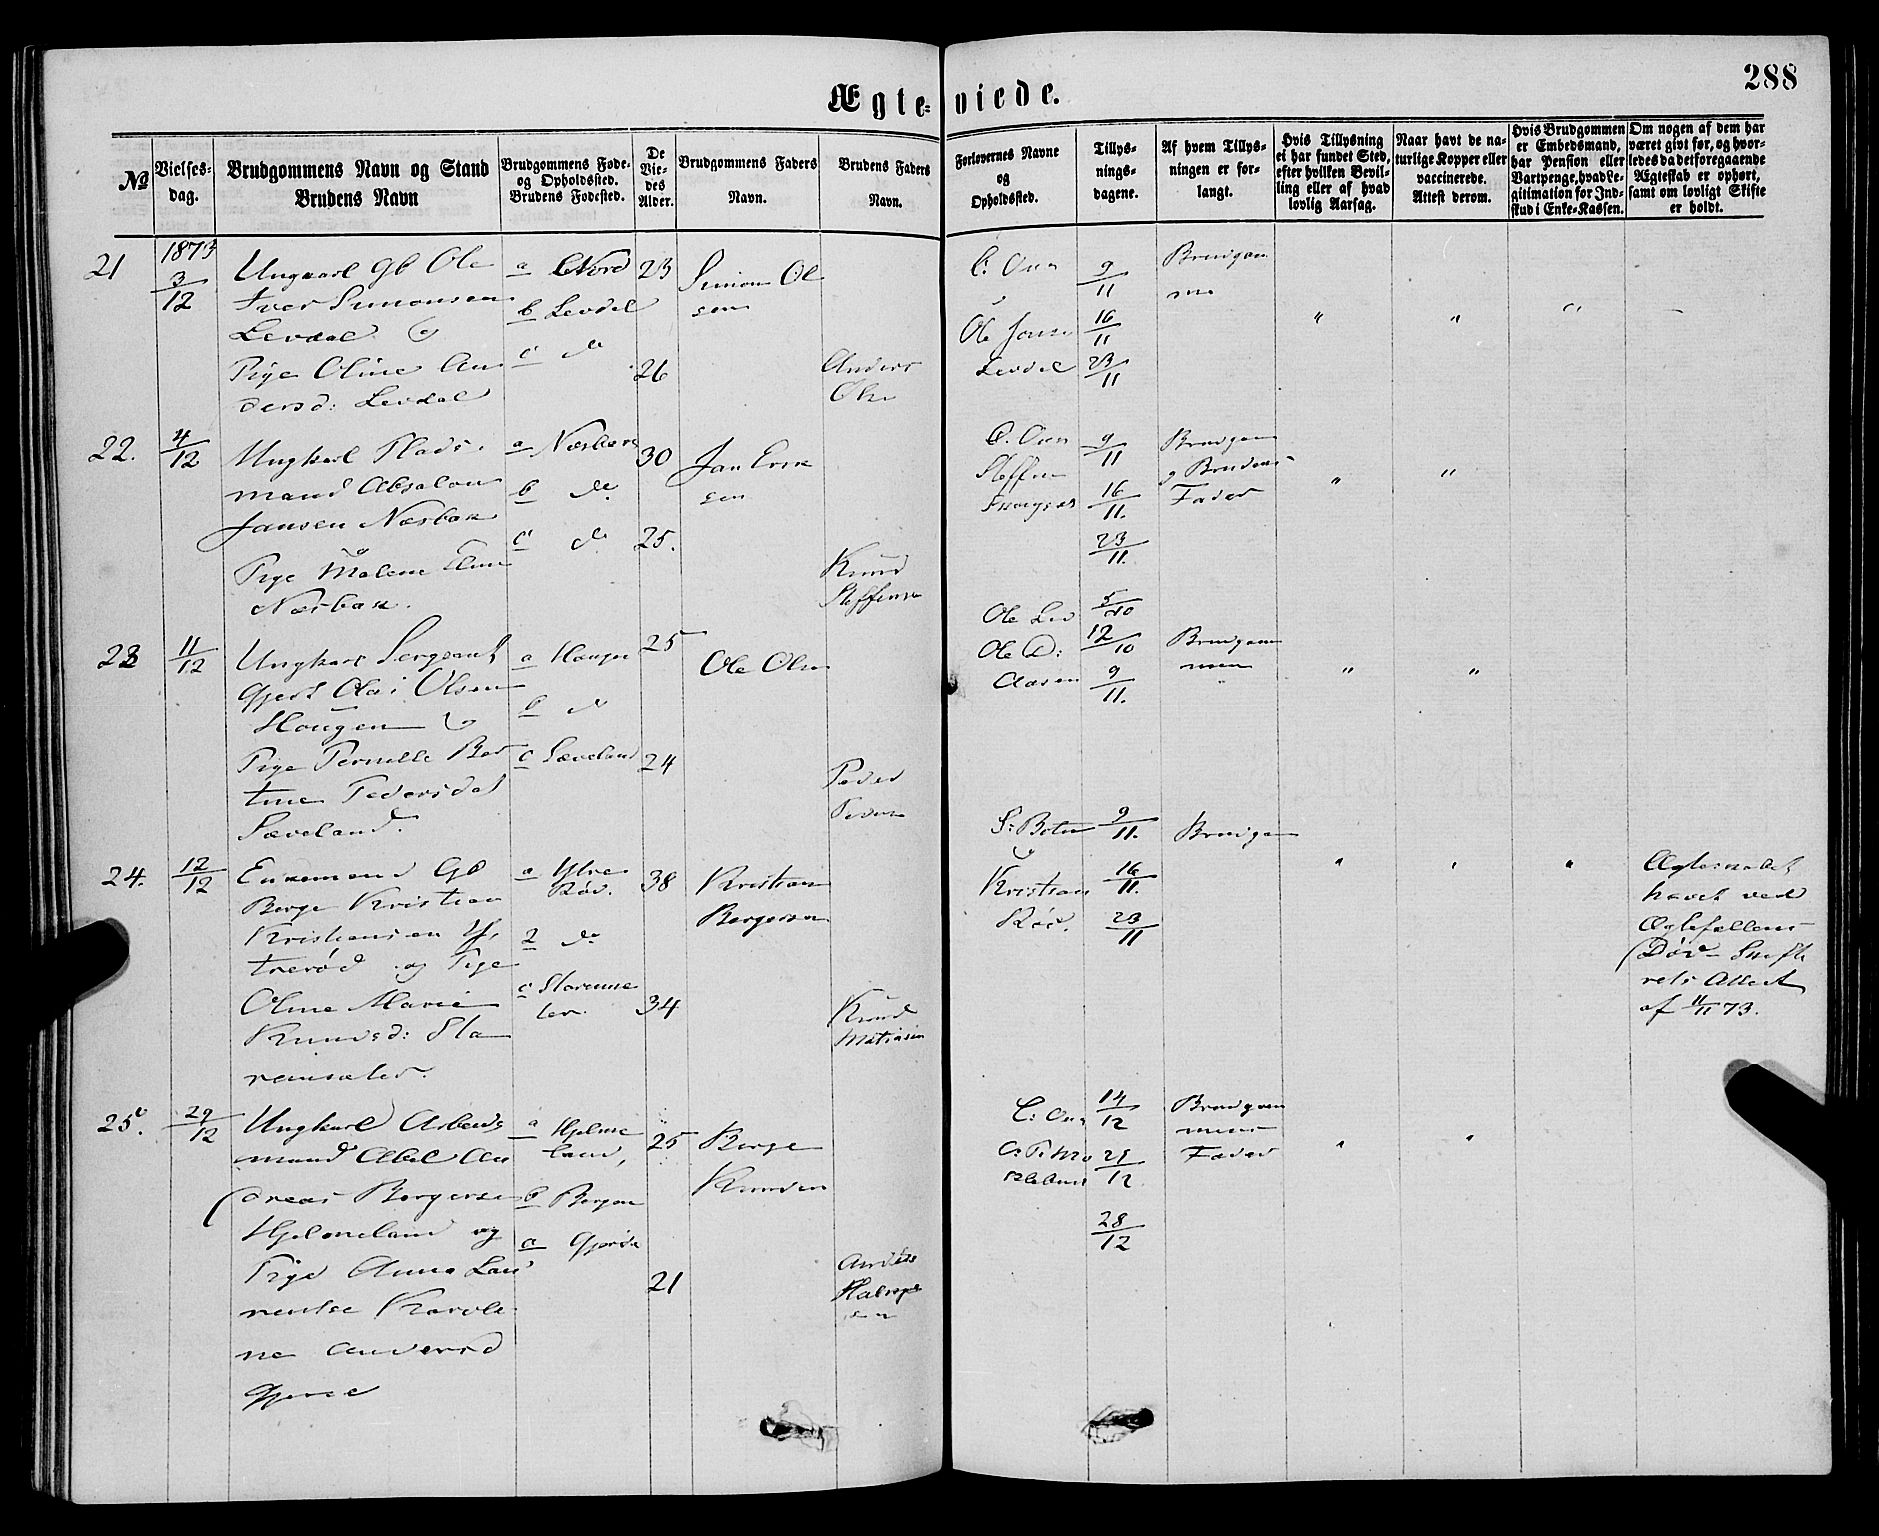 288
Ægte-viede.
No
Vielses-
dag.
Brudgommens Navn og Stand
Brudens Navn
Brudgommens Føde-
og Opholdssted.
Brudens Fødested.
De
Vie-
des
Alder.
Brudgommens Faders
Navn.
Brudens Faders
Navn.
Forlovernes Navne
og
Opholdssted.
Tillys-
nings-
dagene.
Af hvem Tillys-
ningen er for-
langt.
Hvis Tillysning
ei har fundet Sted,
efter hvilken Bevil-
ling eller af hvad
lovlig Aarsag.
Naar havt de na-
turlige Kopper eller
vaccinerede.
Attest derom.
Hvis Brudgommen
er Embedsmand,
har Pension eller
Vartpenge, hvad Le-
gitimation for Ind-
skud i Enke-Kassen.
Om nogen af dem har
været givt før, og hvor-
ledes da det foregaaende
Ægteskab er ophørt,
samt om lovligt Skifte
er holdt.
21
1873
3/12
Ole
Iver Simonsen
Levdal
Pige Oline An
dersd: Levdal
a
b Levdal
c do
23
26
Simon Ol
sen
Anders
Olsen
Ole
Levdal
9/11
16/11
23/11
Brudgom
"
"
"
22.
4/12
Ungkarl Plads-
mand Absalon
Jansen Nesbak
Pige Malene
Nesbak.
a
b do
c do
30
25.
Jan
sen
Knud
Steffensen
Steffen
9/11
16/11.
23/11.
Brudgom
og Brudens
Fader
"
"
23
11/12
Ungkarl Sergeant
Olai Olsen
Hougen
Pige Pernille Ber
tine Pedersdat
Sæveland.
a Hougen
b do
c Sæveland
25
24
Ole Olsen
Peder
Peder
Ole
Ole D:
Aasen
5/10
12/10
9/11.
Brudgom
men
"
"
24.
12/12
Enkemand Gb
Berge Kristian
Kristiansen Y,
trerød og Pige
Oline Marie
Knudsd: Sta
vemsæter.
a Ytre
Rød.
2 do
c
38
34
Kristian
Bergersen
Knud
Matiasen
Kristian
Rød.
9/11.
16/11.
23/11
Brudgom
"
"
"
Ægteskabet
hævet ved
Ægtefællens
Død - Skifte
rets Attest
af 11/11 73.
25.
29/12
Ungkarl Arbeids
mand Abel An
dreas Bergersen
Hjelmeland og
Pige Anna Lau
rentse Karoli-
ne Andersd
a Hjelme
land,
b Bergen
a
25
21
Berge
Knudsen
Anders
14/12
21/12
28/12
Brudgom
mens
Fader
"
"